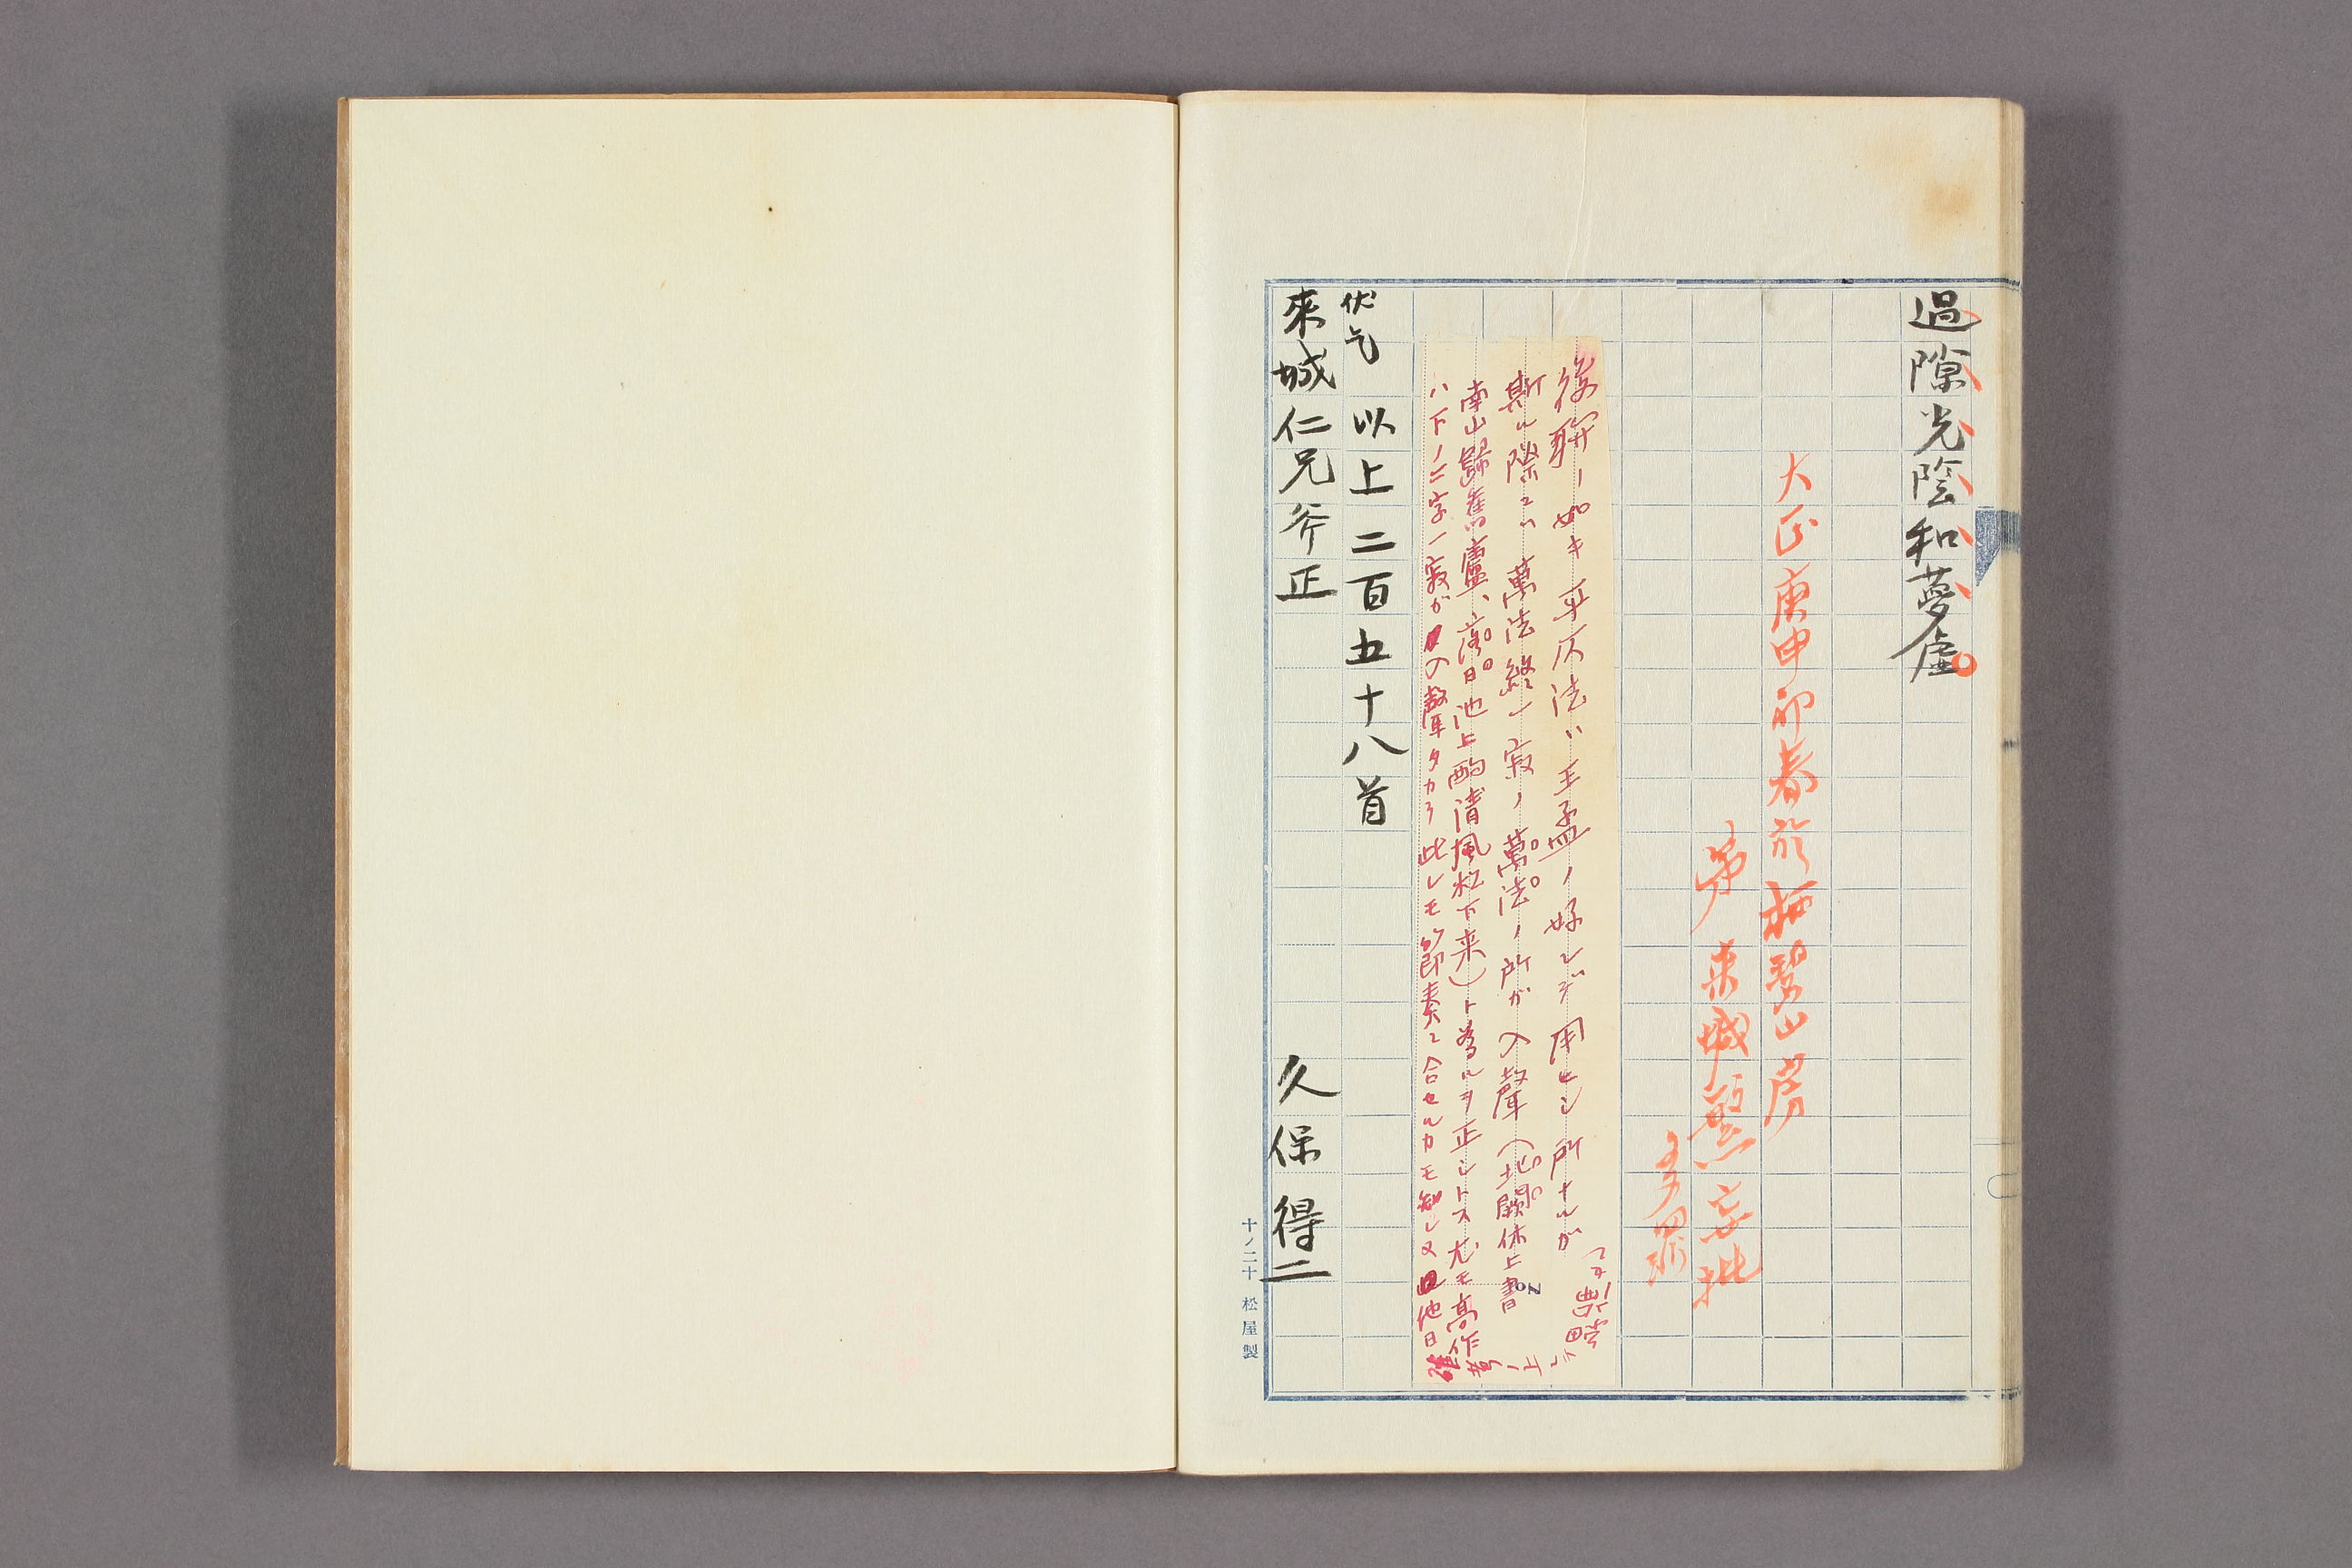 過隙光陰和夢虛
大正庚申初春於梅碧山房
弟 來城䰗妄批
多罪
後聯ノ如キ平仄法ハ王孟ノ好ンデ用ヒシ所ナルガ
斯ル際ニハ萬法終一寂ノ萬法ノ所ガ入聲(北闕休上書
南山歸舊廬、落日池上酌清風松下来)ト為ルヲ正シトス尤モ高作
ハ下ノ二字一寂ガ入聲タカラ此レモ節奏ニ合セルカモ知レヌ他日
伏乞 以上二百五十八首
來城仁兄斧正 久保得二
十ノ二十 松屋製